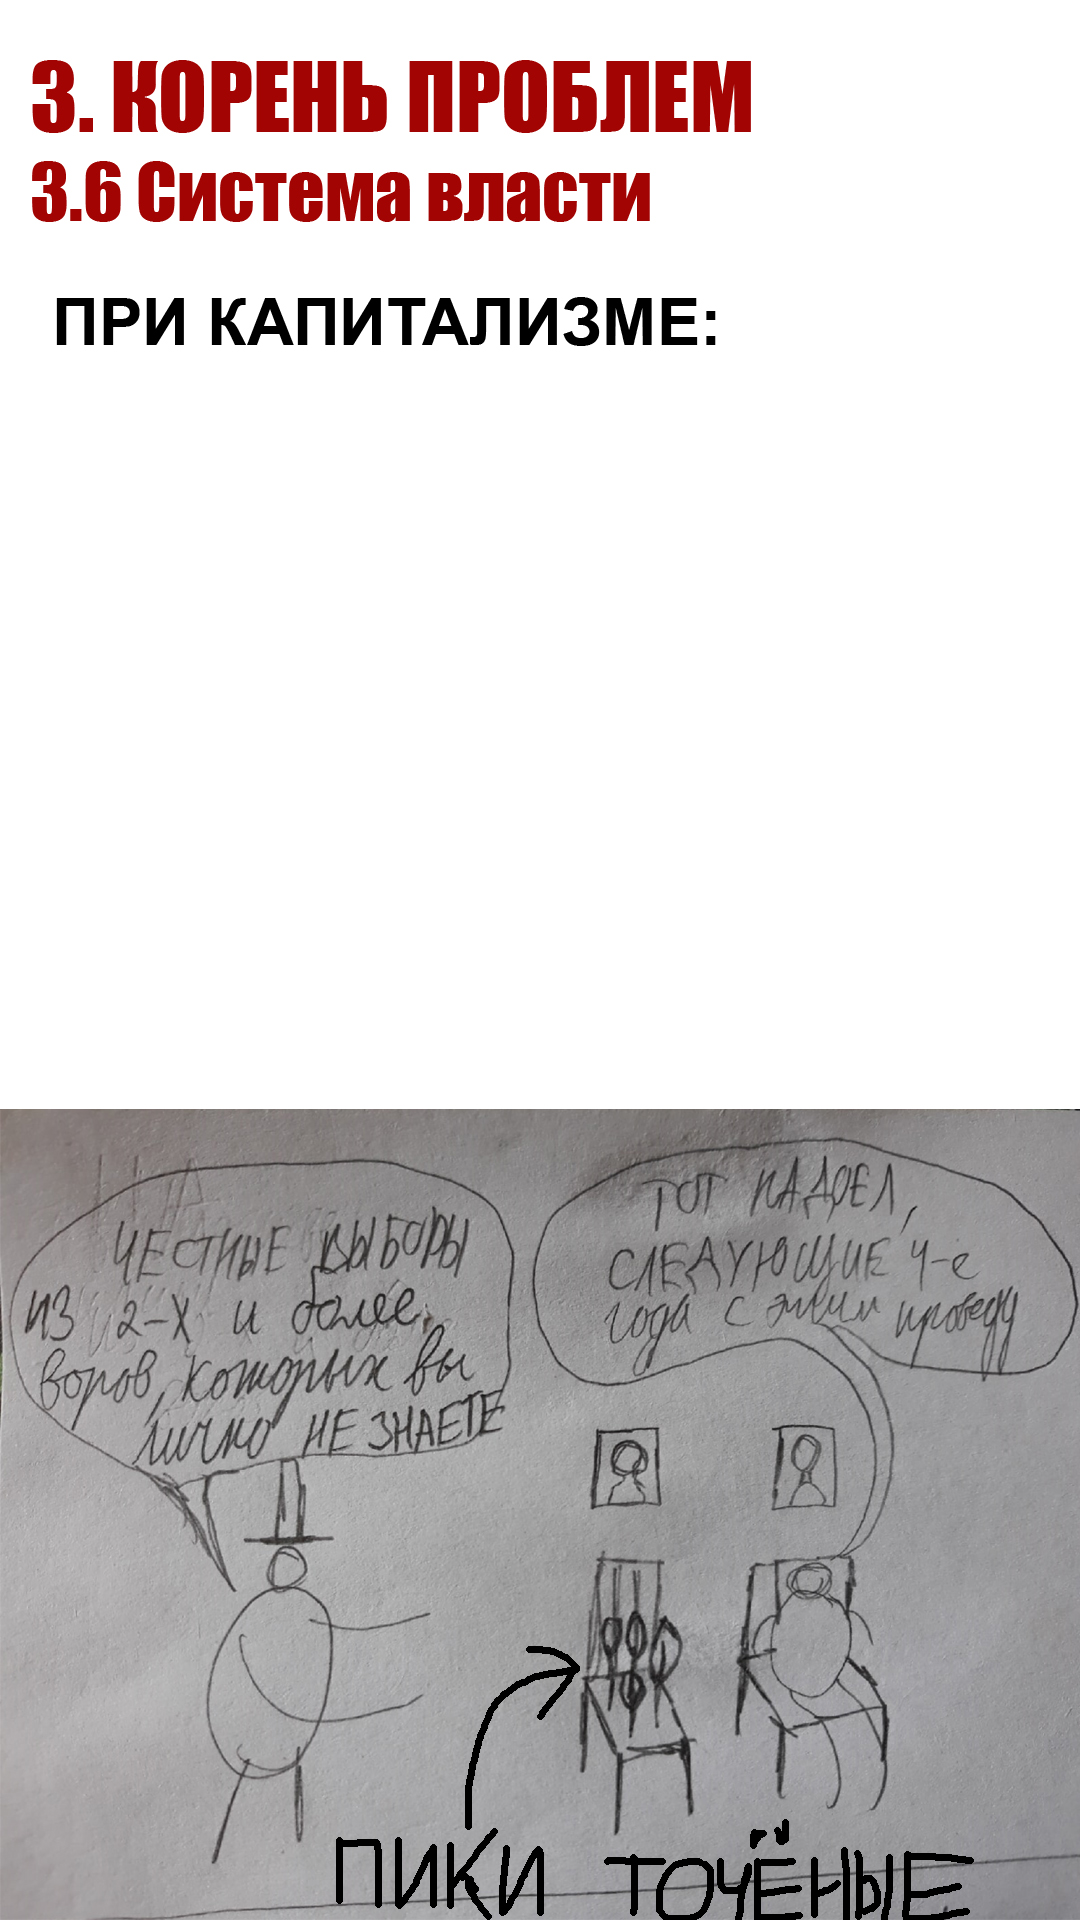 3. КОРЕНЬ ПРОБЛЕМ
3.6 Система власти
ПРИ КАПИТАЛИЗМЕ:
ЧЕСТНЫЕ ВЫБОРЫ
ИЗ 2-Х и более
воров, которых вы
лично НЕ ЗНАЕТЕ
ТОТ НАДОЕЛ,
СЛЕДУЮЩИЕ 4-е
года с этим проведу
ПИКИ ТОЧЁНЫЕ